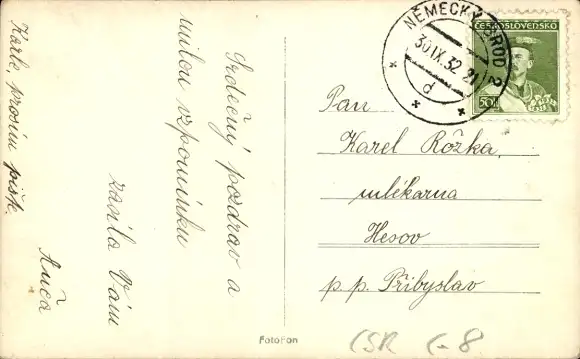 Srdečný pozdrav a
milou vzpomínku
zasílá Vám
Anča
Karle, prosím piš.
NĚMECKÝ BROD 2
30.IX.32.21
d
ČESKOSLOVENSKO
50h
Pan
Karel Rožka,
mlékarna
Hesov
p.p. Přibyslav
FotoFon
ČSR C-8